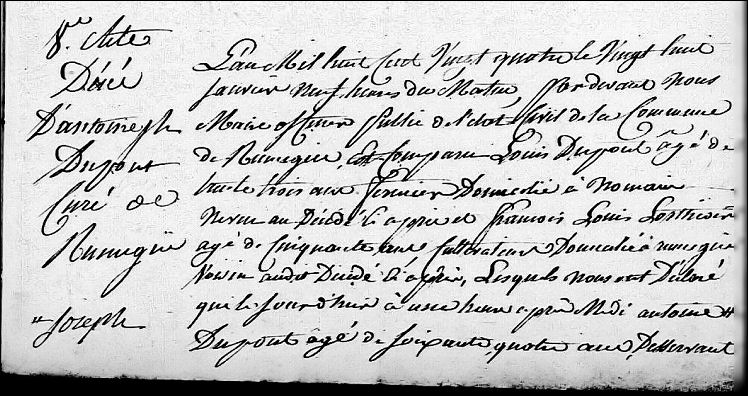 8.e Acte
Décé
D'antoine j.ph
Dupont
Curé de
Rumegië
"Joseph
L'an Mil huit Cent Vingt quatre le Vingt huit
Janvier neuf heures du Matin Pardevant nous
Maire officier Public de l'état Civil de la Commune
de Rumegie, Est Comparu Louis Dupont âgé de
trente trois ans fermier Domicilié à Nomain
Neveu au Décédé ci après et françois Louis
agé de Cinquante ans Cultivateur Domicilié à rumegie
Voisin audit Décédé ci après, Lesquels nous ont Déclaré
que le jour d'hier à une heure après Midi antoine "
Dupont âgé de Soixante quatre ans, Desservant